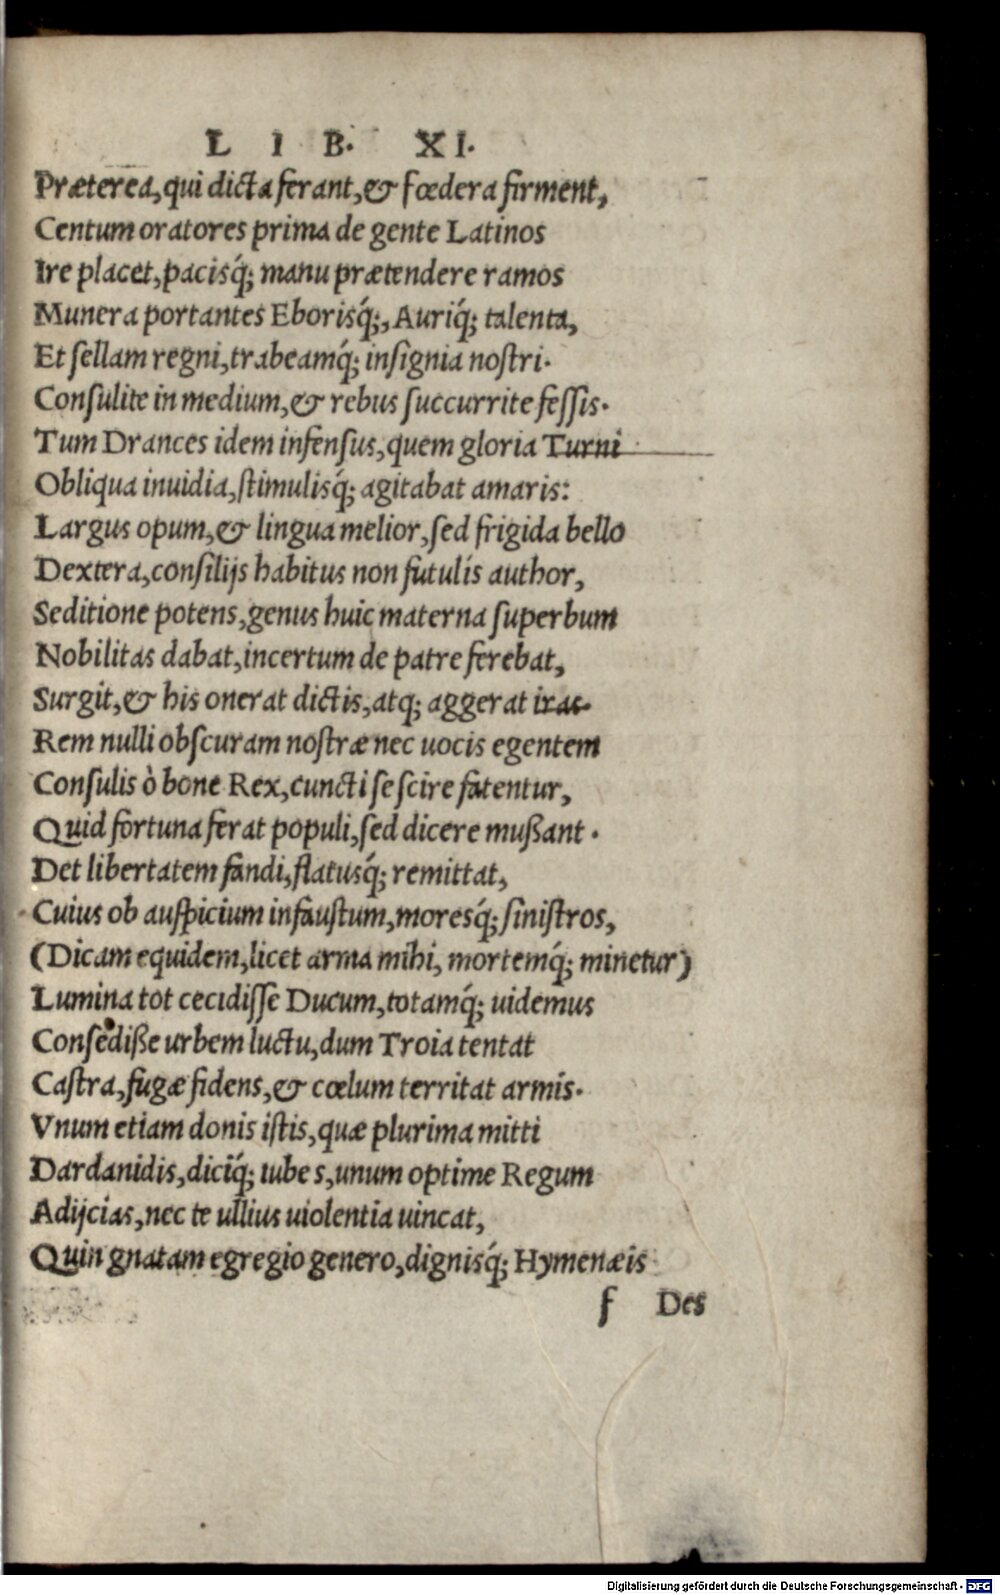 LIB. XI.
Præterea, qui dicta ferant, & fœdera firment,
Centum oratores prima de gente Latinos
Ire placet, pacisq́; manu prætendere ramos
Munera portantes Eborisq́;, Auriq́; talenta,
Et sellam regni, trabeamq́; insignia nostri.
Consulite in medium, & rebus succurrite fessis.
Tum Drances idem infensus, quem gloria Turni
Obliqua inuidia, stimulisq́; agitabat amaris:
Largus opum, & lingua melior, sed frigida bello
Dextera, consilijs habitus non futulis author,
Seditione potens, genus huic materna superbum
Nobilitas dabat, incertum de patre ferebat,
Surgit, & his onerat dictis, atq; aggerat iras.
Rem nulli obscuram nostræ nec uocis egentem
Consulis ò bone Rex, cuncti se scire fatentur,
Quid fortuna ferat populi, sed dicere mußant.
Det libertatem fandi, flatusq́; remittat,
Cuius ob auspicium infaustum, moresq́; sinistros,
(Dicam equidem, licet arma mihi, mortemq́; minetur)
Lumina tot cecidisse Ducum, totamq́; uidemus
Consediße urbem luctu, dum Troia tentat
Castra, fugæ fidens, & cœlum territat armis.
Vnum etiam donis istis, quæ plurima mitti
Dardanidis, diciq́; iubes, unum optime Regum
Adijcias, nec te ullius uiolentia uincat,
Quin gnatam egregio genero, dignisq́; Hymenæis
f Des
Digitalisierung gefördert durch die Deutsche Forschungsgemeinschaft - DFG